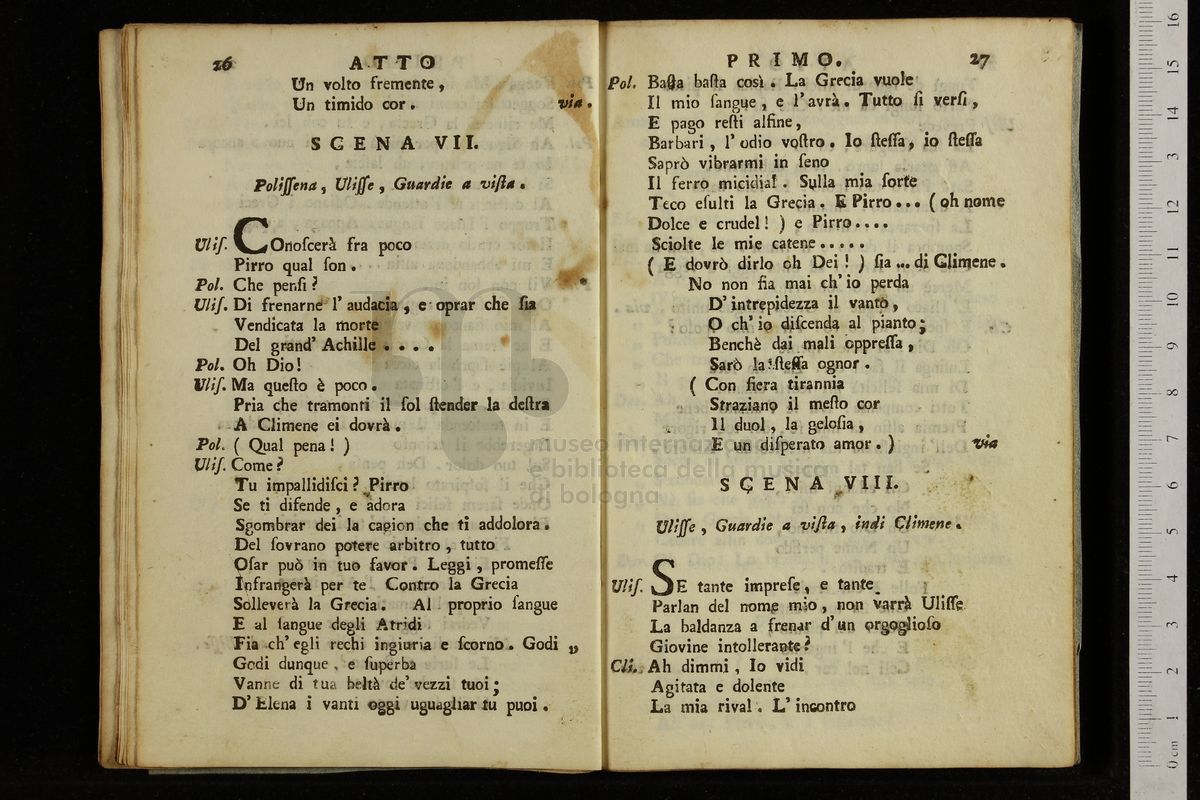 26 ATTO
Un volto fremente,
Un timido cor. via.
SCENA VII.
Polissena, Ulisse, Guardie a vista.
Ulis. COnoscerà fra poco
Pirro qual son.
Pol. Che pensi?
Ulis. Di frenarne l'audacia, e oprar che sia
Vendicata la morte
Del grand' Achille....
Pol. Oh Dio!
Ulis. Ma questo è poco.
Pria che tramonti il sol stender la destra
A Climene ei dovrà.
Pol. ( Qual pena! )
Ulis. Come?
Tu impallidisci? Pirro
Se ti difende, e adora
Sgombrar dei la cagion che ti addolora.
Del sovrano potere arbitro, tutto
Osar può in tuo favor. Leggi, promesse
Infrangerà per te. Contro la Grecia
Solleverà la Grecia. Al proprio sangue
E al sangue degli Atridi
Fia ch'egli rechi ingiuria e scorno. Godi „
Godi dunque, e superba
Vanne di tua beltà de' vezzi tuoi;
D' Elena i vanti oggi uguagliar tu puoi.
PRIMO. 27
Pol. Basta basta così. La Grecia vuole
Il mio sangue, e l'avrà. Tutto si versi,
E pago resti alfine,
Barbari, l'odio vostro. Io stessa, io stessa
Saprò vibrarmi in seno
Il ferro micidial. Sulla mia sorte
Teco esulti la Grecia. E Pirro... ( oh nome
Dolce e crudel! ) e Pirro....
Sciolte le mie catene.....
( E dovrò dirlo oh Dei! ) sia ... di Climene.
No non fia mai ch'io perda
D'intrepidezza il vanto,
O ch'io discenda al pianto;
Benchè dai mali oppressa,
Sarò la stessa ognor.
( Con fiera tirannia
Straziano il mesto cor
Il duol, la gelosia,
E un disperato amor. ) via
SCENA VIII.
Ulisse, Guardie a vista, indi Climene.
Ulis. SE tante imprese, e tante
Parlan del nome mio, non varrà Ulisse
La baldanza a frenar d'un orgoglioso
Giovine intollerante?
Cli. Ah dimmi, Io vidi
Agitata e dolente
La mia rival. L'incontro
museo internaz
e biblioteca della musica
di bologna
0 cm 1 2 3 4 5 6 7 8 9 10 11 12 13 14 15 16